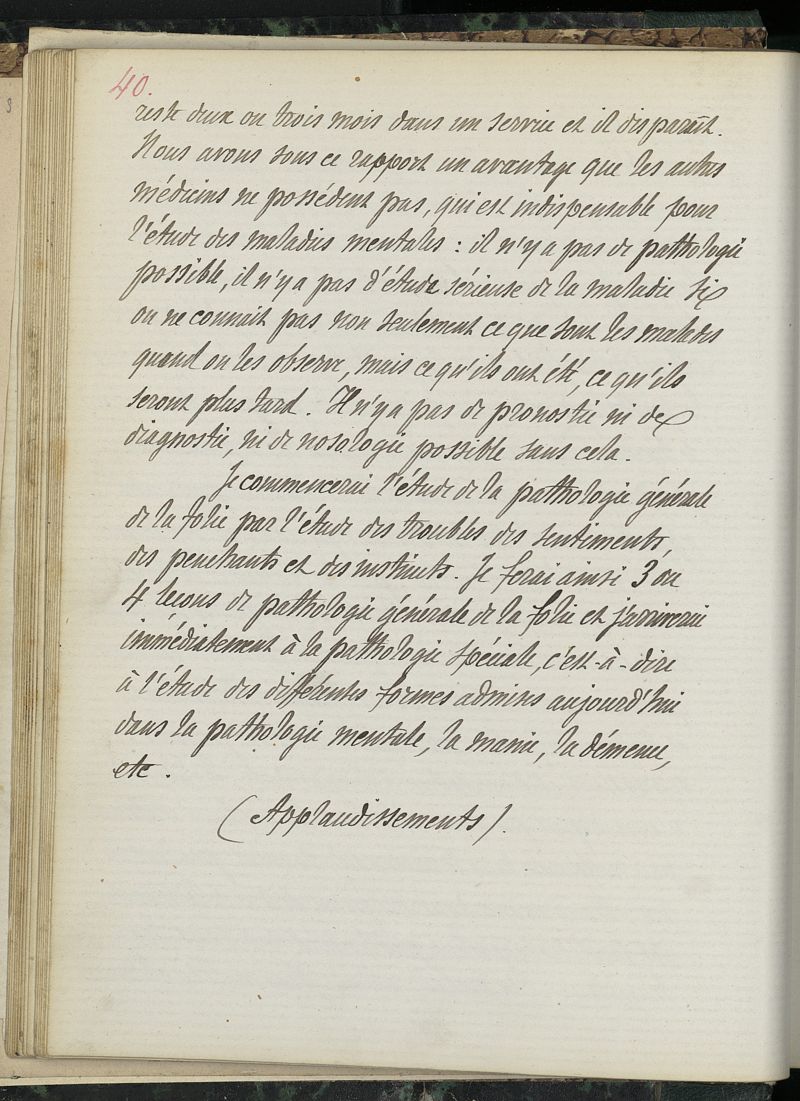 40.
reste deux ou trois mois dans un service et il disparaît.
Nous avons sous ce rapport un avantage que les autres
médecins ne possèdent pas, qui est indispensable pour
l'étude des maladies mentales : il n'y a pas de pathologie
possible, il n'y a pas d'étude sérieuse de la maladie si
on ne connait pas non seulement ce que sont les malades
quand on les observe, mais ce qu'ils ont été, ce qu'ils
seront plus tard. Il n'y a pas de pronostic ni de
diagnostic, ni de nosologie possible sans cela.
Je commencerai l'étude de la pathologie générale
de la folie par l'étude des troubles des sentiments,
des penchants et des instincts. Je ferai ainsi 3 ou
4 leçons de pathologie générale de la folie et j'arriverai
immédiatement à la pathologie spéciale, c'est-à-dire
à l'étude des différentes formes admises aujourd'hui
dans la pathologie mentale, la manie, la démence,
etc.
(Applaudissements).